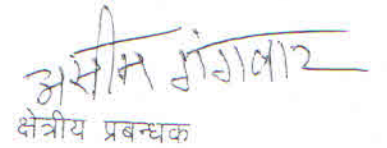 असीम गंगवार
क्षेत्रीय प्रबन्धक